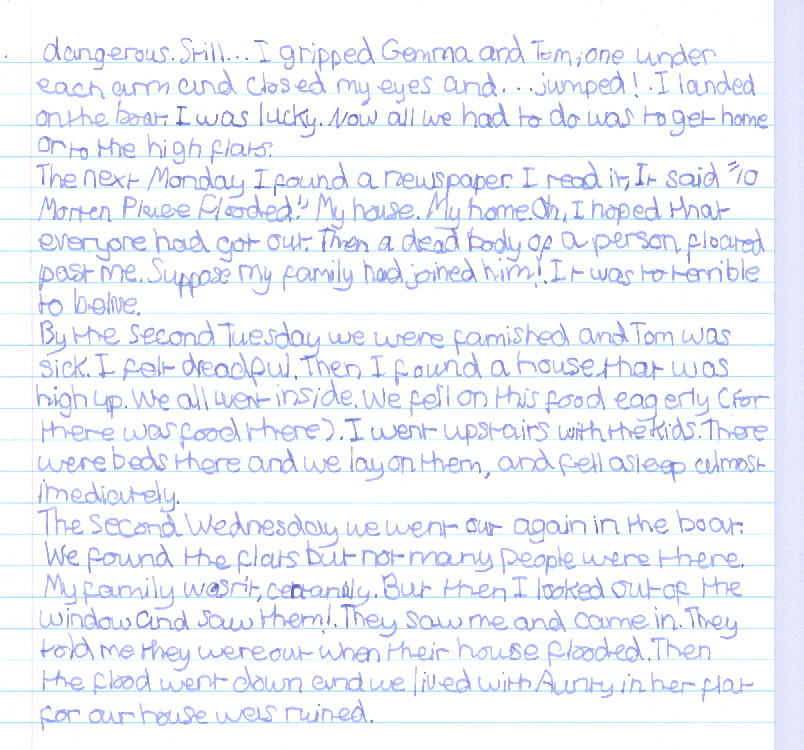 dangerous. Still... I gripped Gemma and Tom, one under
each arm and closed my eyes and... jumped! I landed
on the boat. I was lucky. Now all we had to do was to get home
or to the high flats.
The next Monday I found a newspaper. I read it, It said "10
Morten Place Flooded!" My house. My home. Oh, I hoped that
everyone had got out. Then a dead body of a person floated
past me. Suppose my family had joined him! It was to terrible
to belive.
By the second Tuesday we were famished and Tom was
sick. I felt dreadful. Then I found a house that was
high up. We all went inside. We fell on this food eagerly (for
there was food there). I went upstairs with the kids. There
were beds there and we lay on them, and fell asleep almost
imediately.
The second Wednesday we went out again in the boat.
We found the flats but not many people were there.
My family wasn't, certanly. But then I looked out of the
window and saw them!. They saw me and came in. They
told me they were out when their house flooded. Then
the flood went down and we lived with Aunty in her flat
for our house was ruined.